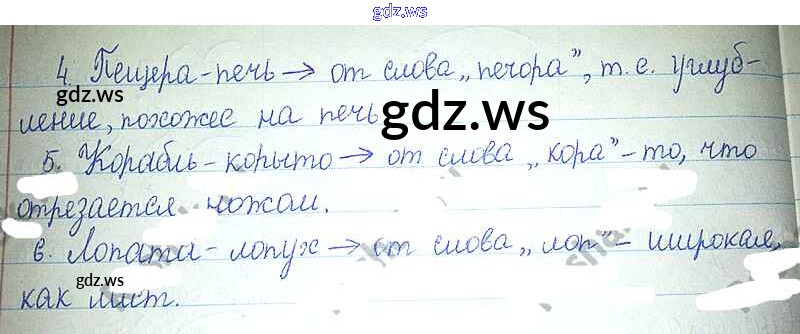 gdz.ws
4. Пещера-печь → от слова „печора", т.е. углуб-
gdz.ws
ление, похожее на печь
gdz.ws
5. Корабль-корыто → от слова „кора"-то, что
отрезается ножом.
6. Лопата-лопух → от слова „лоп"- широкая,
gdz.ws
как лист.
gdz.ws
gdz.ws